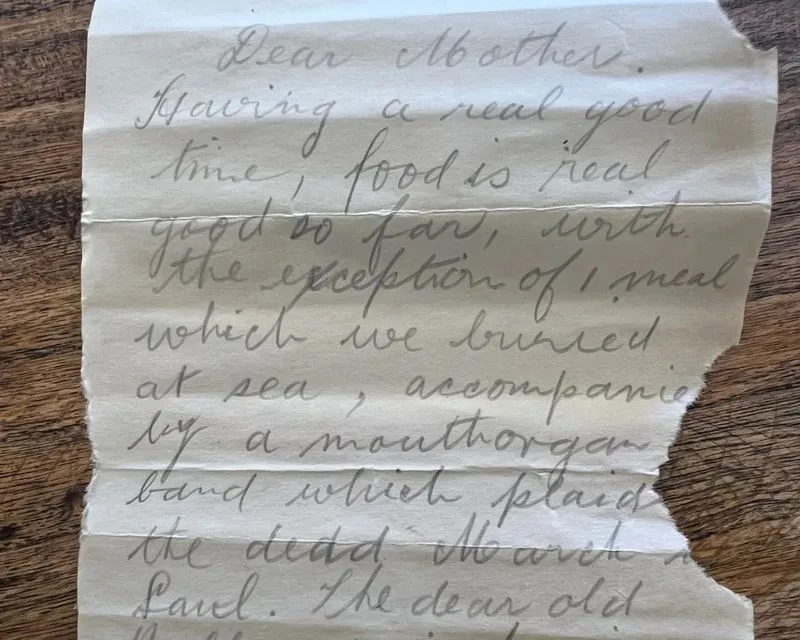 Dear Mother.
Having a real good
time, food is real
good so far, with
the exception of 1 meal
which we buried
at sea, accompanie
by a mouthorgan
band which plaid
the dead March
Saul. The dear old